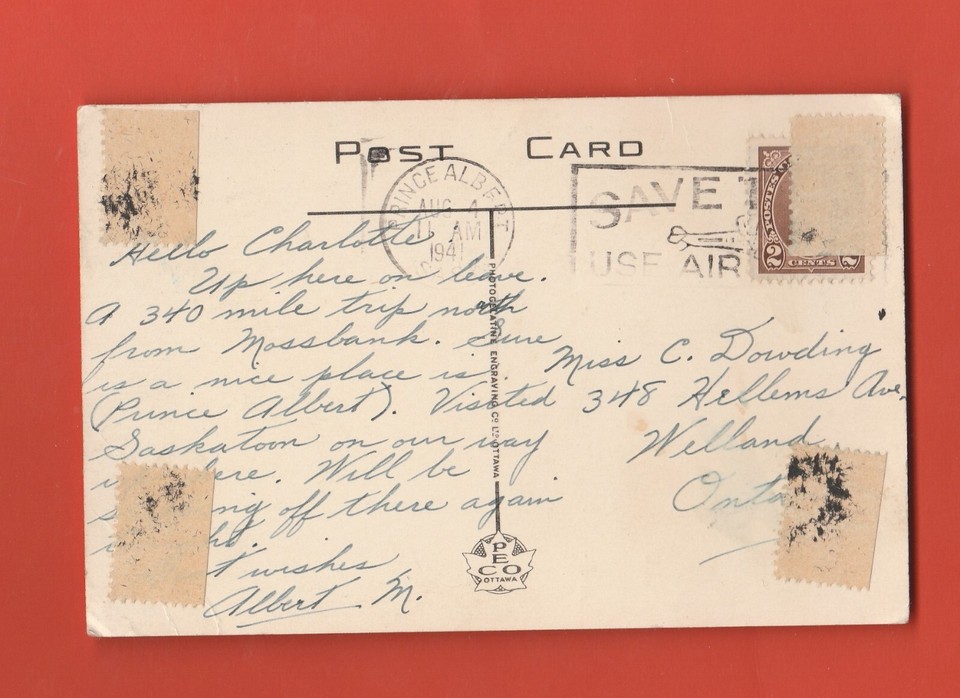 POST CARD
PRINCE ALBERT
AUG 4
11 AM
1941
SAVE
USE AIR
POSTES
2 CENTS 2
Hello Charlotte
Up here on leave.
A 340 mile trip north
from Mossbank. Sure
is a nice place is
(Prince Albert). Visited
Saskatoon on our way
here. Will be
off there again
wishes
Albert M.
PHOTOGELATINE ENGRAVING CO. LTD. OTTAWA
PECO
OTTAWA
Miss C. Dowding
348 Hellems Ave.
Welland